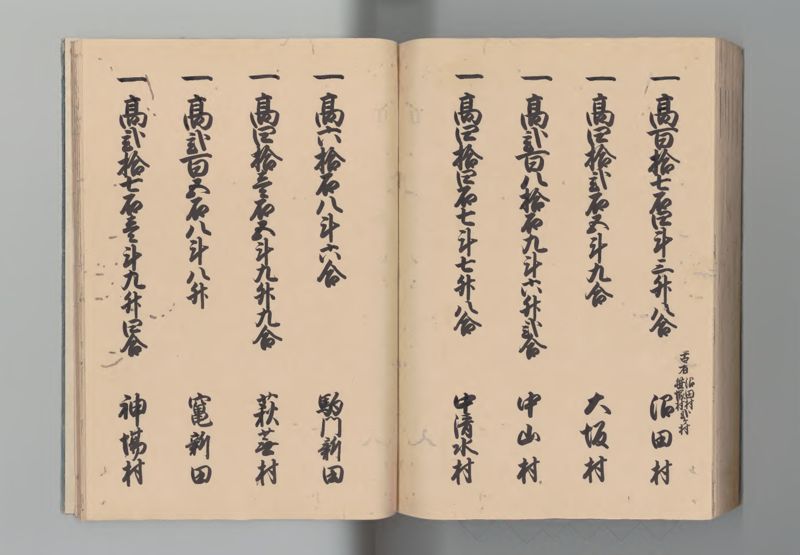 一 高百拾七石四斗三升八合 沼田村
一 高四拾弐石五斗九合 大坂村
一 高弐百八拾石九斗六升弐合 中山村
一 高四拾四石七斗七升八合 中清水村
一 高六拾石八斗六合 駒門新田
一 高四拾壱石五斗九升九合 萩蕪村
一 高弐百五石八斗八升 竈新田
一 高弐拾七石壱斗九升四合 神場村